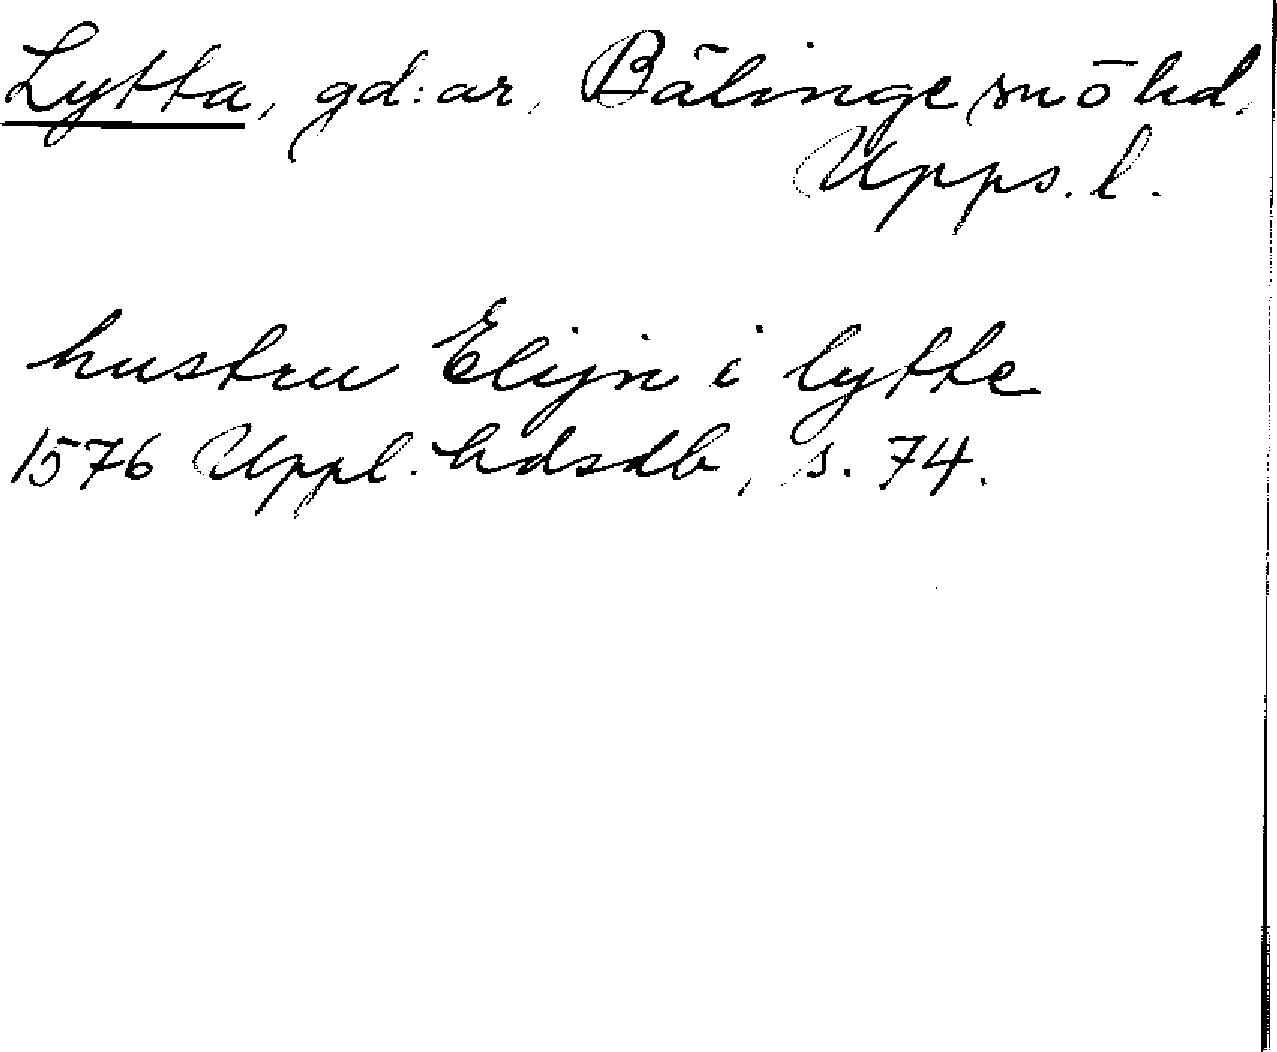 Lytta, gd:ar, Bälinge sn ö hd.
Upps. l.
hustru Elijn i lytte
1576 Uppl. hdsdb, s. 74.